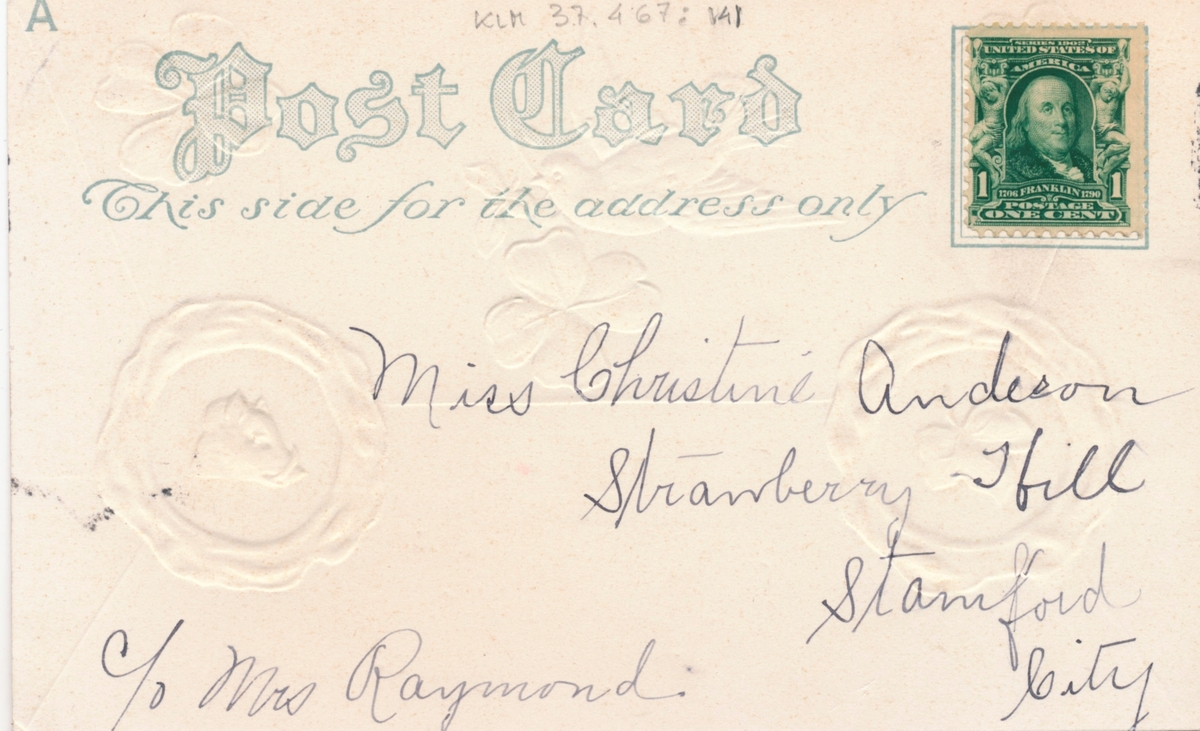 A
KLM 37.467: 141
Post Card
This side for the address only
SERIES 1902
UNITED STATES OF
AMERICA
1 1706 FRANKLIN 1790 1
POSTAGE
ONE CENT
Miss Christine Anderson
Strawberry Hill
Stamford
City
c/o Mrs Raymond.